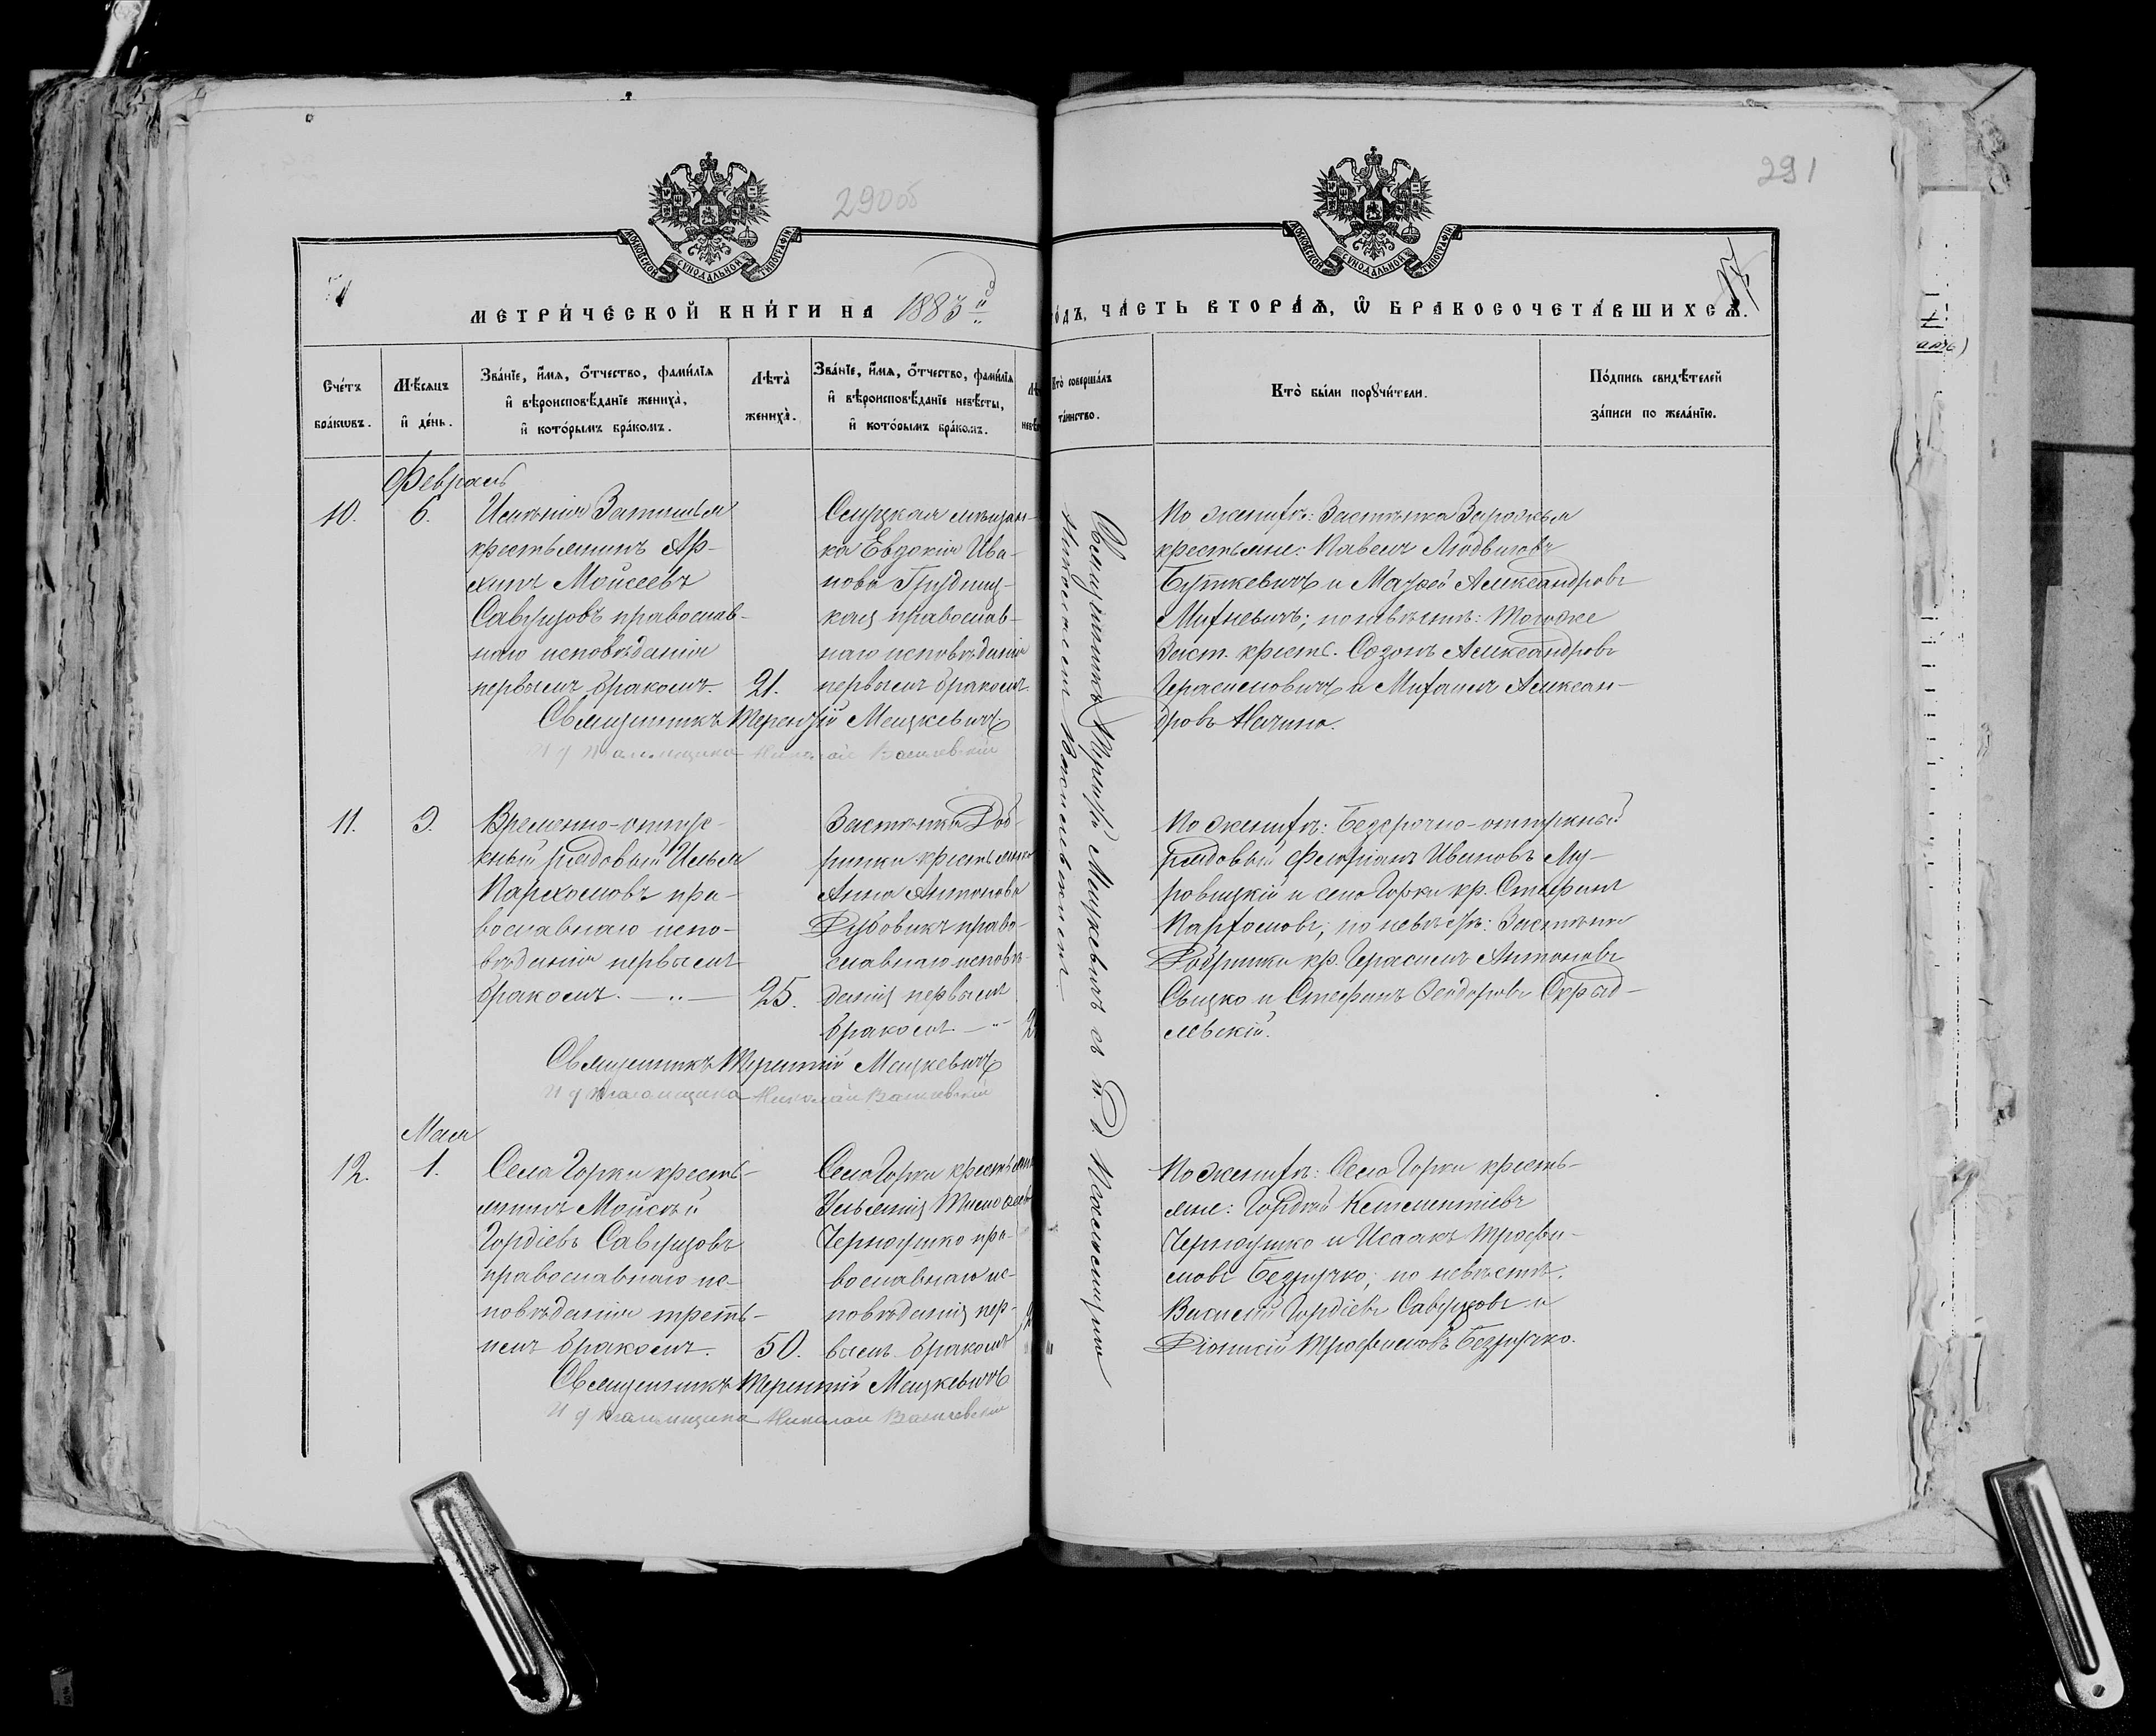 290об
291
МОСКОВСКОЙ СѴНОДАЛЬНОЙ ТИПОГРАФІИ
МОСКОВСКОЙ СѴНОДАЛЬНОЙ ТИПОГРАФІИ
МЕТРИ́ЧЕСКОЙ КНИ́ГИ НА 1883й
го́дъ, ЧА́СТЬ ВТОРА́Ѧ, Ѽ БРАКОСОЧЕТА́ВШИХСѦ.
Сче́тъ бра́кѡвъ.
Мѣ́сяцъ и҆ де́нь.
Зва́нїе, и҆́мя, ѻ҆́тчество, фами́лїя
и҆ вѣроисповѣ́данїе жениха̀,
и҆ кото́рымъ бра́комъ.
Лѣта̀ жениха̀.
Зва́нїе, и҆́мя, ѻ҆́тчество, фами́лїя
и҆ вѣроисповѣ́данїе невѣ́сты,
и҆ кото́рымъ бра́комъ.
Кто̀ соверша́лъ
та́инство.
Кто̀ бы́ли порꙋчи́тели.
По́дпись свидѣ́телей
за́писи по жела́нїю.
Февраль
10.
6.
Имѣнія Затишья
крестьянинъ Ар-
хипъ Моисеевъ
Савущовъ православ-
наго исповѣданія
первымъ бракомъ.
21.
Слуцкая мѣщан-
ка Евдокія Ива-
нова
кая православ-
наго исповѣданія
первымъ бракомъ.
Священникъ Терентій Мацкевичъ
И д Псаломщика Николай
По женихѣ: Застѣнка Заросля
крестьяне: Павелъ Людвиговъ
Буткевичъ и Матѳей Александровъ
Михневичъ; по невѣстѣ: Тогоже
Заст. крест. Созонъ Александровъ
Герасимовичъ и Михаилъ Алексан-
дровъ Начина.
11.
9.
Временно-отпуск-
ный рядовый Илья
Пархомовъ пра-
вославнаго испо-
вѣданія первымъ
бракомъ. — „ —
25.
Застѣнка Доб-
ринки крестьянка
Анна Антонова
Дубовикъ право-
славнаго исповѣ-
данія первымъ
бракомъ — „ —
Священникъ Терентій Мацкевичъ
И д Псаломщика Николай
По женихѣ: Безсрочно-отпускный
рядовый Флоріанъ Ивановъ Му-
ровицкій и села Горки кр. Стефанъ
Пархомовъ; по невѣстѣ: Застѣнка
Добринки кр. Герасимъ Антоновъ
Сыцко и Стефанъ Ѳеодоровъ
левскій.
Мая
12.
1.
Села Горки кресть-
янинъ Моисей
Гордіевъ Савущовъ
православнаго ис-
повѣданія треть-
имъ бракомъ.
50.
Села Горки крестьянка
Ульянія
Черноушко пра-
вославнаго ис-
повѣданія пер-
вымъ бракомъ
Священникъ Терентій Мацкевичъ
И д Псаломщика Николай
По женихѣ: Села Горки кресть-
яне: Гордѣй Климентіевъ
Черноушко и Исаакъ Трофи-
мовъ Безручко; по невѣстѣ:
Василій Гордіевъ Савущовъ и
Діонисій Трофимовъ Безручко.
Священникъ Терентій Мацкевичъ съ и. д. Псаломщика
Николаемъ